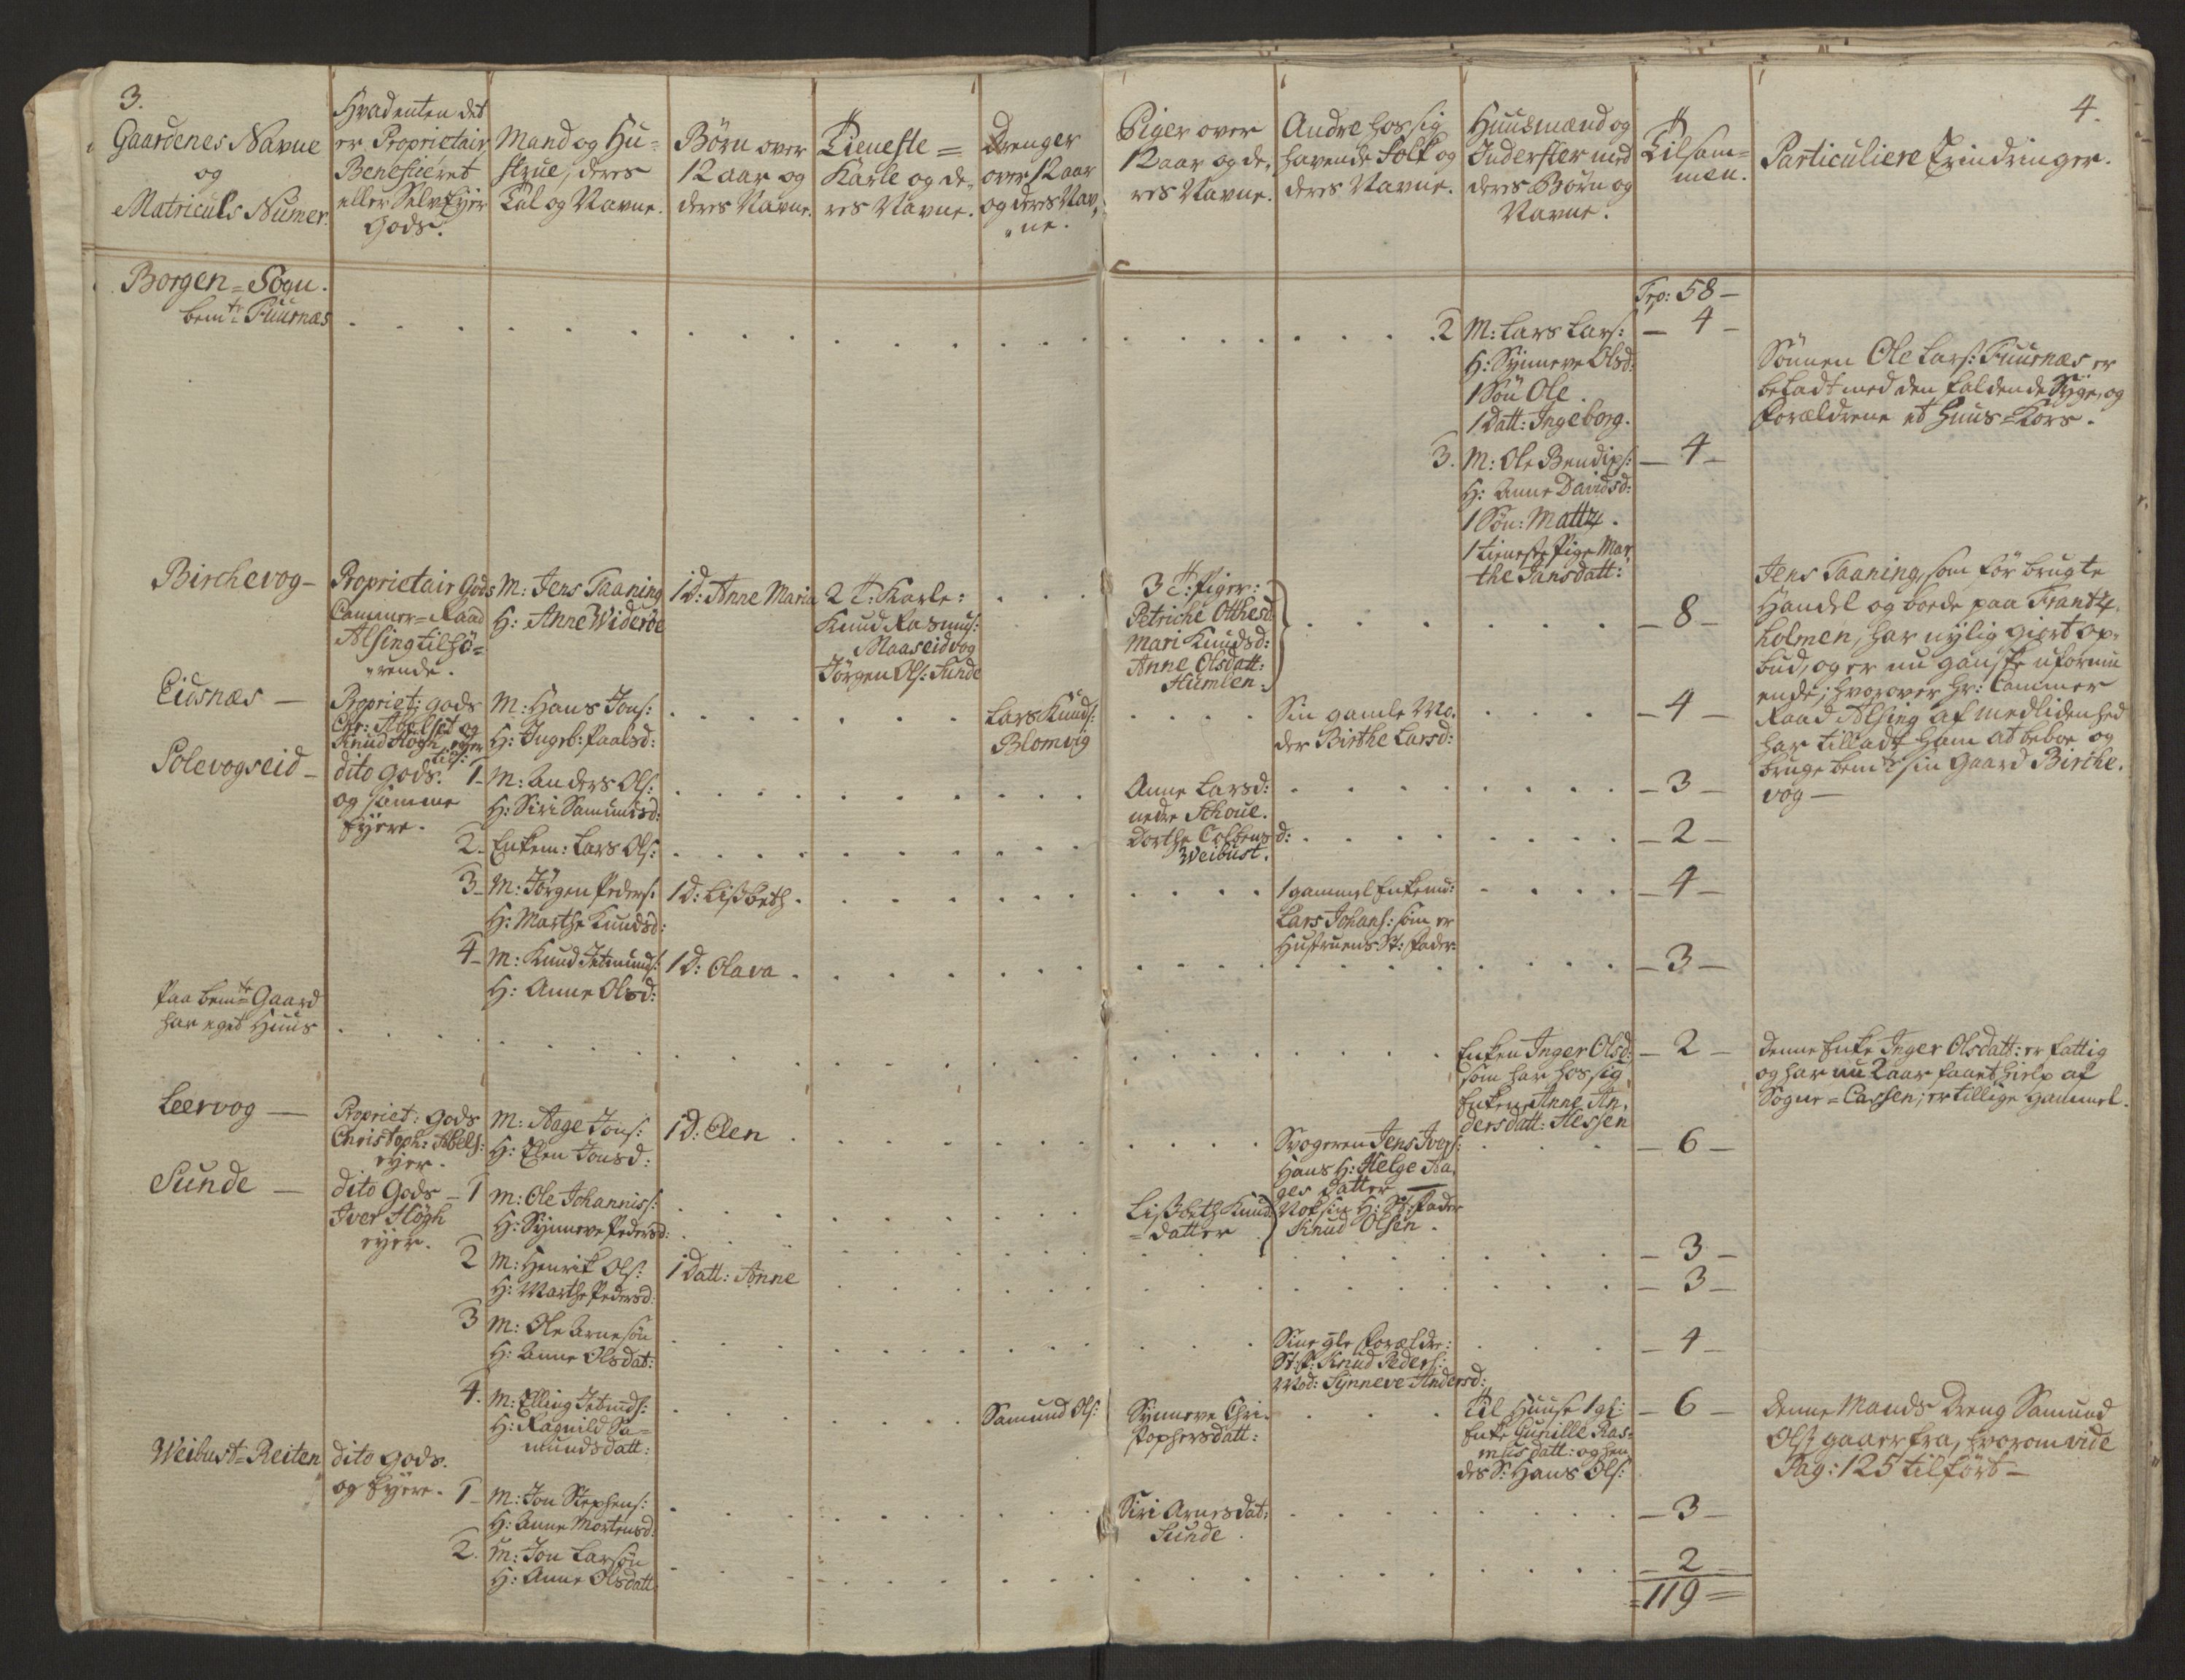 3.
Gaardenes Navne
og
Matriculs Numer.
Hvadenten det
er Proprietair
Beneficeret
eller Selveyer
Gods.
Mand og Hu-
strue, deres
Tal og Navne.
Børn over
12 aar og
deres Navne.
Tieneste=
Karle og de-
res Navne.
Drenger
over 12 aar
og deres Nav-
ne.
Piger over
12 aar og de-
res Navne.
Andre hos sig
havende Folk og
deres Navne.
Huusmænd og
Inderster med
deres Børn og
Navne.
Tilsam=
men.
4.
Particuliere Erindringer.
Borgen=Sogn.
bemte Fuurnæs
Trp: 58 —
2 M: Lars Lars:
H: Synneve Olsd:
1 Søn Ole.
1 Datt: Ingeborg.
— 4 —
Sønnen Ole Lars: Fuurnæs er
beladt med den faldende Syge, og
Forældrene et Huus=Kors.
3. M: Ole Bendixs:
H: Anne Davidsd:
1 Søn: Mattz.
1 tieneste Pige Mar
the Jansdatt:
— 4 —
Birchevog —
Proprietair Gods
Cammer=Raad
Alsing tilhø=
rende.
M: Jens Taaning
H: Anne Widerøe
1 D: Anne Maria
2 T: Karle:
Knud Rasmus:
Maaseidvog
Jørgen Ols: Sunde
3 T: Piger:
Petriche Othesd
Mari Knudsd:
Anne Olsdatt:
Humlen.
— 8 —
Jens Taaning, som før brugte
Handel og boede paa Frantz-
holmen, har nylig giort Op-
bud, og er nu ganske uformu
ende; hvorover Hr: Cammer
Raad Alsing af medlidenhed
har tilladt ham at beboe og
bruge bemte sin Gaard Birche-
vog —
Eidsnæs —
Propriet: gods
Chr: Abelset og
Knud Høgh eyer
M: Hans Jons:
H: Ingeb: Paalsd:
Lars Knuds:
Blomvig
Sin gamle Mo-
der Birthe Larsd:
— 4 —
Solevogseid —
dito Gods.
og samme
Eyere.
1 — M: Anders Ols:
H: Siri Samunsd:
Anne Larsd:
nedre Schoue.
— 3 —
2. Enkem: Lars Ols:
Dorthe Colbensd:
Weibust.
— 2 —
3 — M: Jørgen Peders:
H: Marthe Knudsd:
1 D: Lisbeth.
1 gammel Enkemd:
Lars Johans: som er
Hustruens St: Fader.
— 4 —
4 — M: Knud Jetmunds:
H: Anne Olsd:
1 D: Olava
— 3 —
Paa bemte Gaard
har eget Huus
Enken Inger Olsd:
som har hos sig
Enken Anne An-
dersdatt: Hessen
— 2 —
Denne Enke Inger Olsdatt: er fattig
og har nu 2 aar faaet hielp af
Sogne=Cassen; er tillige Gammel.
Leervog —
Propriet: gods
Christoph: Abels:
eyer.
M: Aage Jons:
H: Elen Jonsd:
1 D: Elen
Svogeren Jens Ivers:
Hans H: Helge Aa-
ges datter —
— 6 —
Sunde —
dito Gods — 1
Iver Høgh
eyer.
M: Ole Johanniss:
H: Synneve Pedersd:
Lisbeth Knud
=datter
H: St: Fader
Knud Olsen.
— 3 —
2 M: Henrik Ols:
H: Marthe Pedersd:
1 Datt: Anne
— 3 —
3 M: Ole Arnesøn
H: Anne Olsdat:
Sine gle Forældre:
St: F: Knud Peders:
Mod: Synneve Andersd:
— 4 —
4. M: Elling Jetmds:
H: Ragnild Sa=
mundsdatt:
Samund Ols:
Synneve Chri-
stophersdatt:
Til Huuse 1 gl:
Enke Gunille Ras=
musdatt: og hen
des S: Hans Ols:
— 6 —
Denne Mands Dreng Samund
Ols: gaaer fra, hvorom vide
Pag: 125 tilført —
Weibust=Reiten
dito gods.
og Eyere.
1 — M: Jon Stephens:
H: Anne Mortensd:
Siri Arnesdat:
Sunde.
— 3 —
2. M: Jon Larsøn
H: Anne Olsdatt
— 2 —
= 119 =